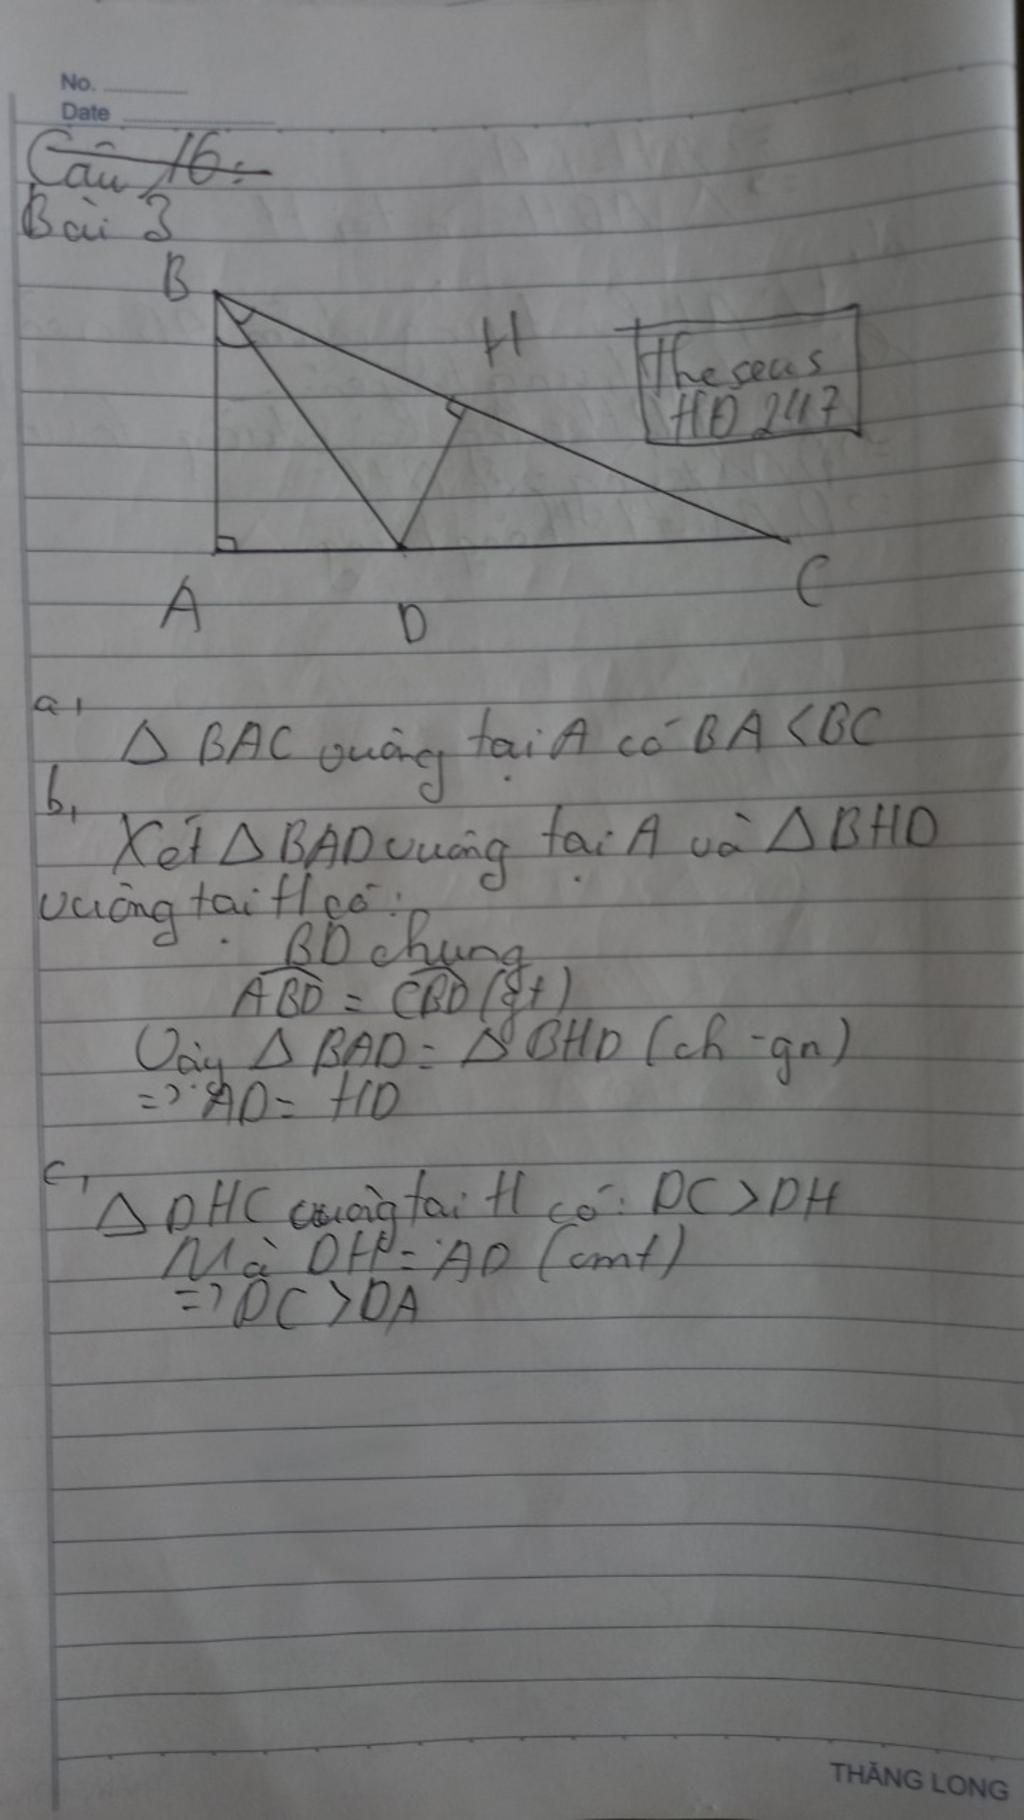 No.
Date
Câu 16:
Bài 3
B
H
Theseus
HD 247
A
D
C
a,
Δ BAC vuông tại A có BA < BC
b,
Xét Δ BAD vuông tại A và Δ BHD
vuông tại H có:
BD chung
ABD = CBD (gt)
Vậy Δ BAD = Δ BHD (ch - gn)
=> AD = HD
c,
Δ DHC vuông tại H có: DC > DH
Mà DH = AD (cmt)
=> DC > DA
THĂNG LONG